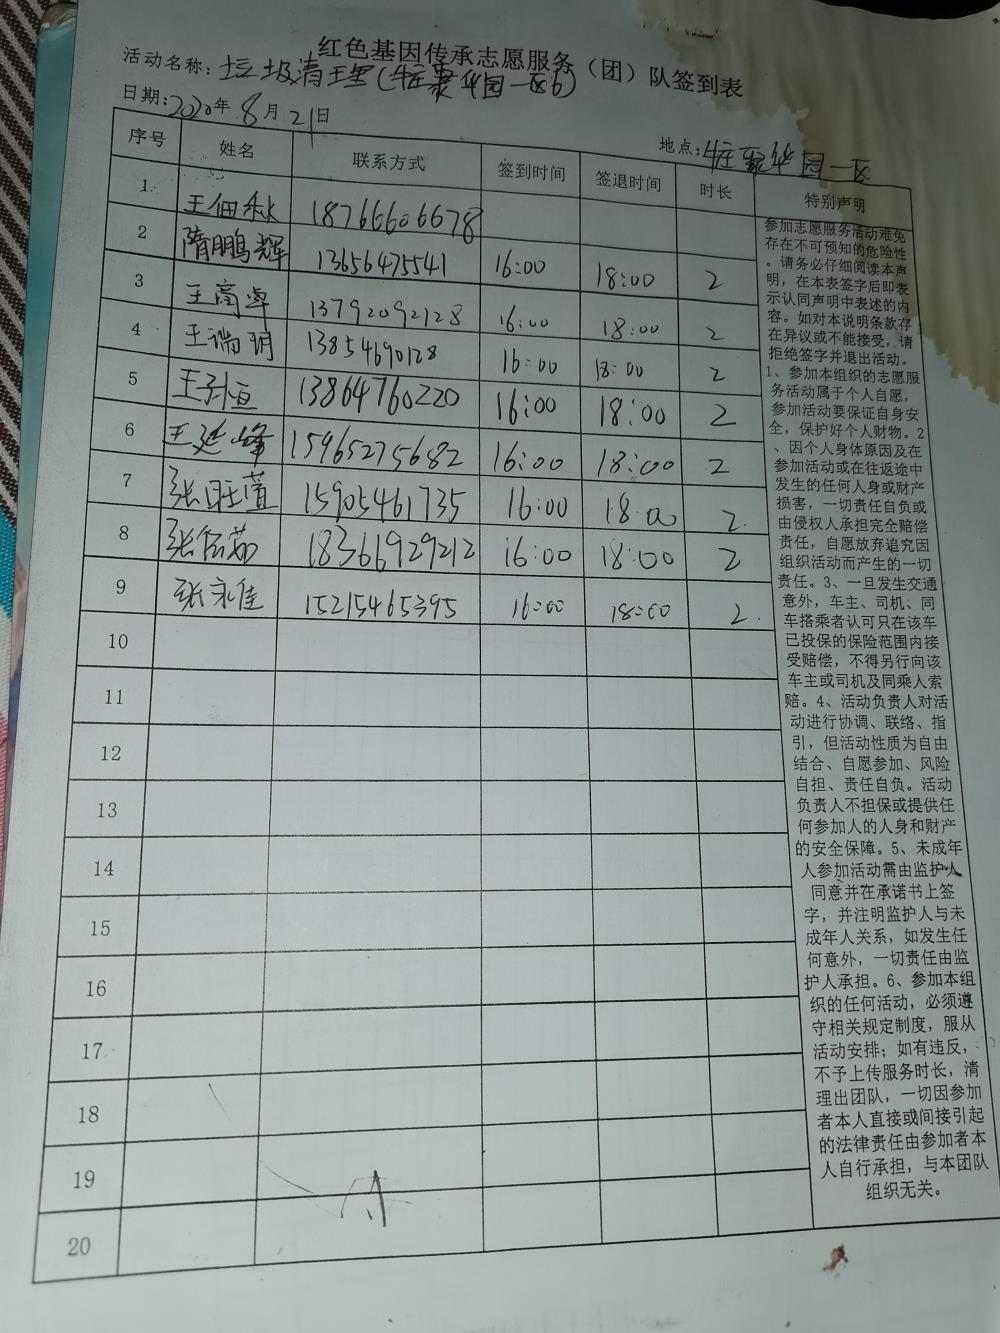 红色基因传承志愿服务（团）队签到表
活动名称：垃圾清理
日期：2020年8月21日
地点：华园一区
序号 姓名 联系方式 签到时间 签退时间 时长 特别声明
1 王佃秋 18766606678
2 隋鹏辉 13656475541 16:00 18:00 2
3 王高 13792092128 16:00 18:00 2
4 王瑞玥 13854690128 16:00 18:00 2
5 王孙恒 13864760220 16:00 18:00 2
6 王延峰 15965275682 16:00 18:00 2
7 张旺萱 15905461735 16:00 18:00 2
8 张茹 18366929212 16:00 18:00 2
9 张永佳 15215465395 16:00 18:00 2
10
11
12
13
14
15
16
17
18
19
20
参加志愿服务活动难免
存在不可预知的危险性
。请务必仔细阅读本声
明，在本表签字后即表
示认同声明中表述的内
容。如对本说明条款存
在异议或不能接受，请
拒绝签字并退出活动。
1、参加本组织的志愿服
务活动属于个人自愿，
参加活动要保证自身安
全，保护好个人财物。2
、因个人身体原因及在
参加活动或在往返途中
发生的任何人身或财产
损害，一切责任自负或
由侵权人承担完全赔偿
责任，自愿放弃追究因
组织活动而产生的一切
责任。3、一旦发生交通
意外，车主、司机、同
车搭乘者认可只在该车
已投保的保险范围内接
受赔偿，不得另行向该
车主或司机及同乘人索
赔。4、活动负责人对活
动进行协调、联络、指
引，但活动性质为自由
结合、自愿参加、风险
自担、责任自负。活动
负责人不担保或提供任
何参加人的人身和财产
的安全保障。5、未成年
人参加活动需由监护人
同意并在承诺书上签
字，并注明监护人与未
成年人关系，如发生任
何意外，一切责任由监
护人承担。6、参加本组
织的任何活动，必须遵
守相关规定制度，服从
活动安排；如有违反，
不予上传服务时长，清
理出团队，一切因参加
者本人直接或间接引起
的法律责任由参加者本
人自行承担，与本团队
组织无关。